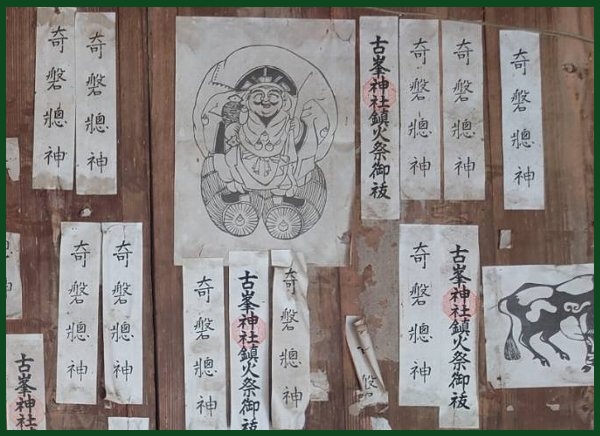 奇磐牕神
奇磐牕神
古峯神社鎮火祭御祓
奇磐牕神
奇磐牕神
奇磐牕神
奇磐牕神
奇磐牕神
奇磐牕神
古峯神社鎮火祭御祓
奇磐牕神
奇磐牕神
古峯神社鎮火祭御祓
古峯神社